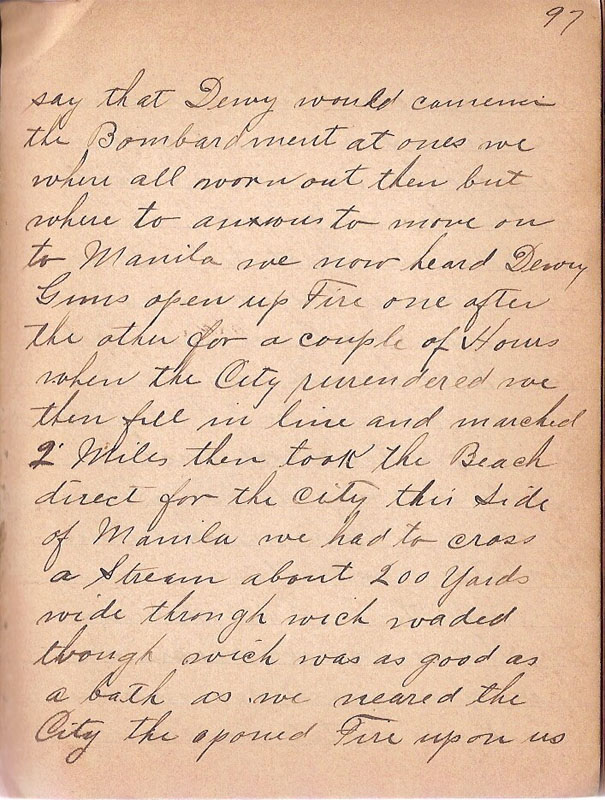 97
say that Dewy would
the Bombardment at ones we
where all worn out then but
where to anxwus to move on
to Manila we now heard Dewy
Guns open up Fire one after
the other for a couple of Hours
when the City surrendered we
then fell in line and marched
2 Miles then took the Beach
direct for the City this Side
of Manila we had to cross
a Stream about 200 Yards
wide through wich waded
though wich was as good as
a bath as we neared the
City the oponed Fire upon us